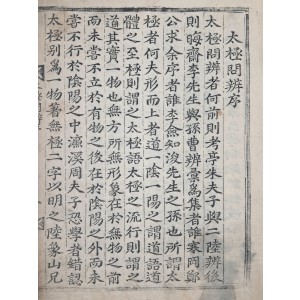 太極問辨序
太極問辨者何前則考亭朱夫子與二陸辨後
則晦齋李先生與孫曹辨彙爲集者誰寒岡鄭
公求余序者誰李僉知浚先生之孫也所謂太
極者何夫形而上者道一陰一陽之謂道語道
體之至極則謂之太極語太極之流行則謂之
道其實一物也無方所無形象在於無物之前
而未嘗不立於有物之後在於陰陽之外而未
嘗不行於陰陽之中濂溪周夫子恐學者錯認
太極別爲一物著無極二字以明之陸象山兄